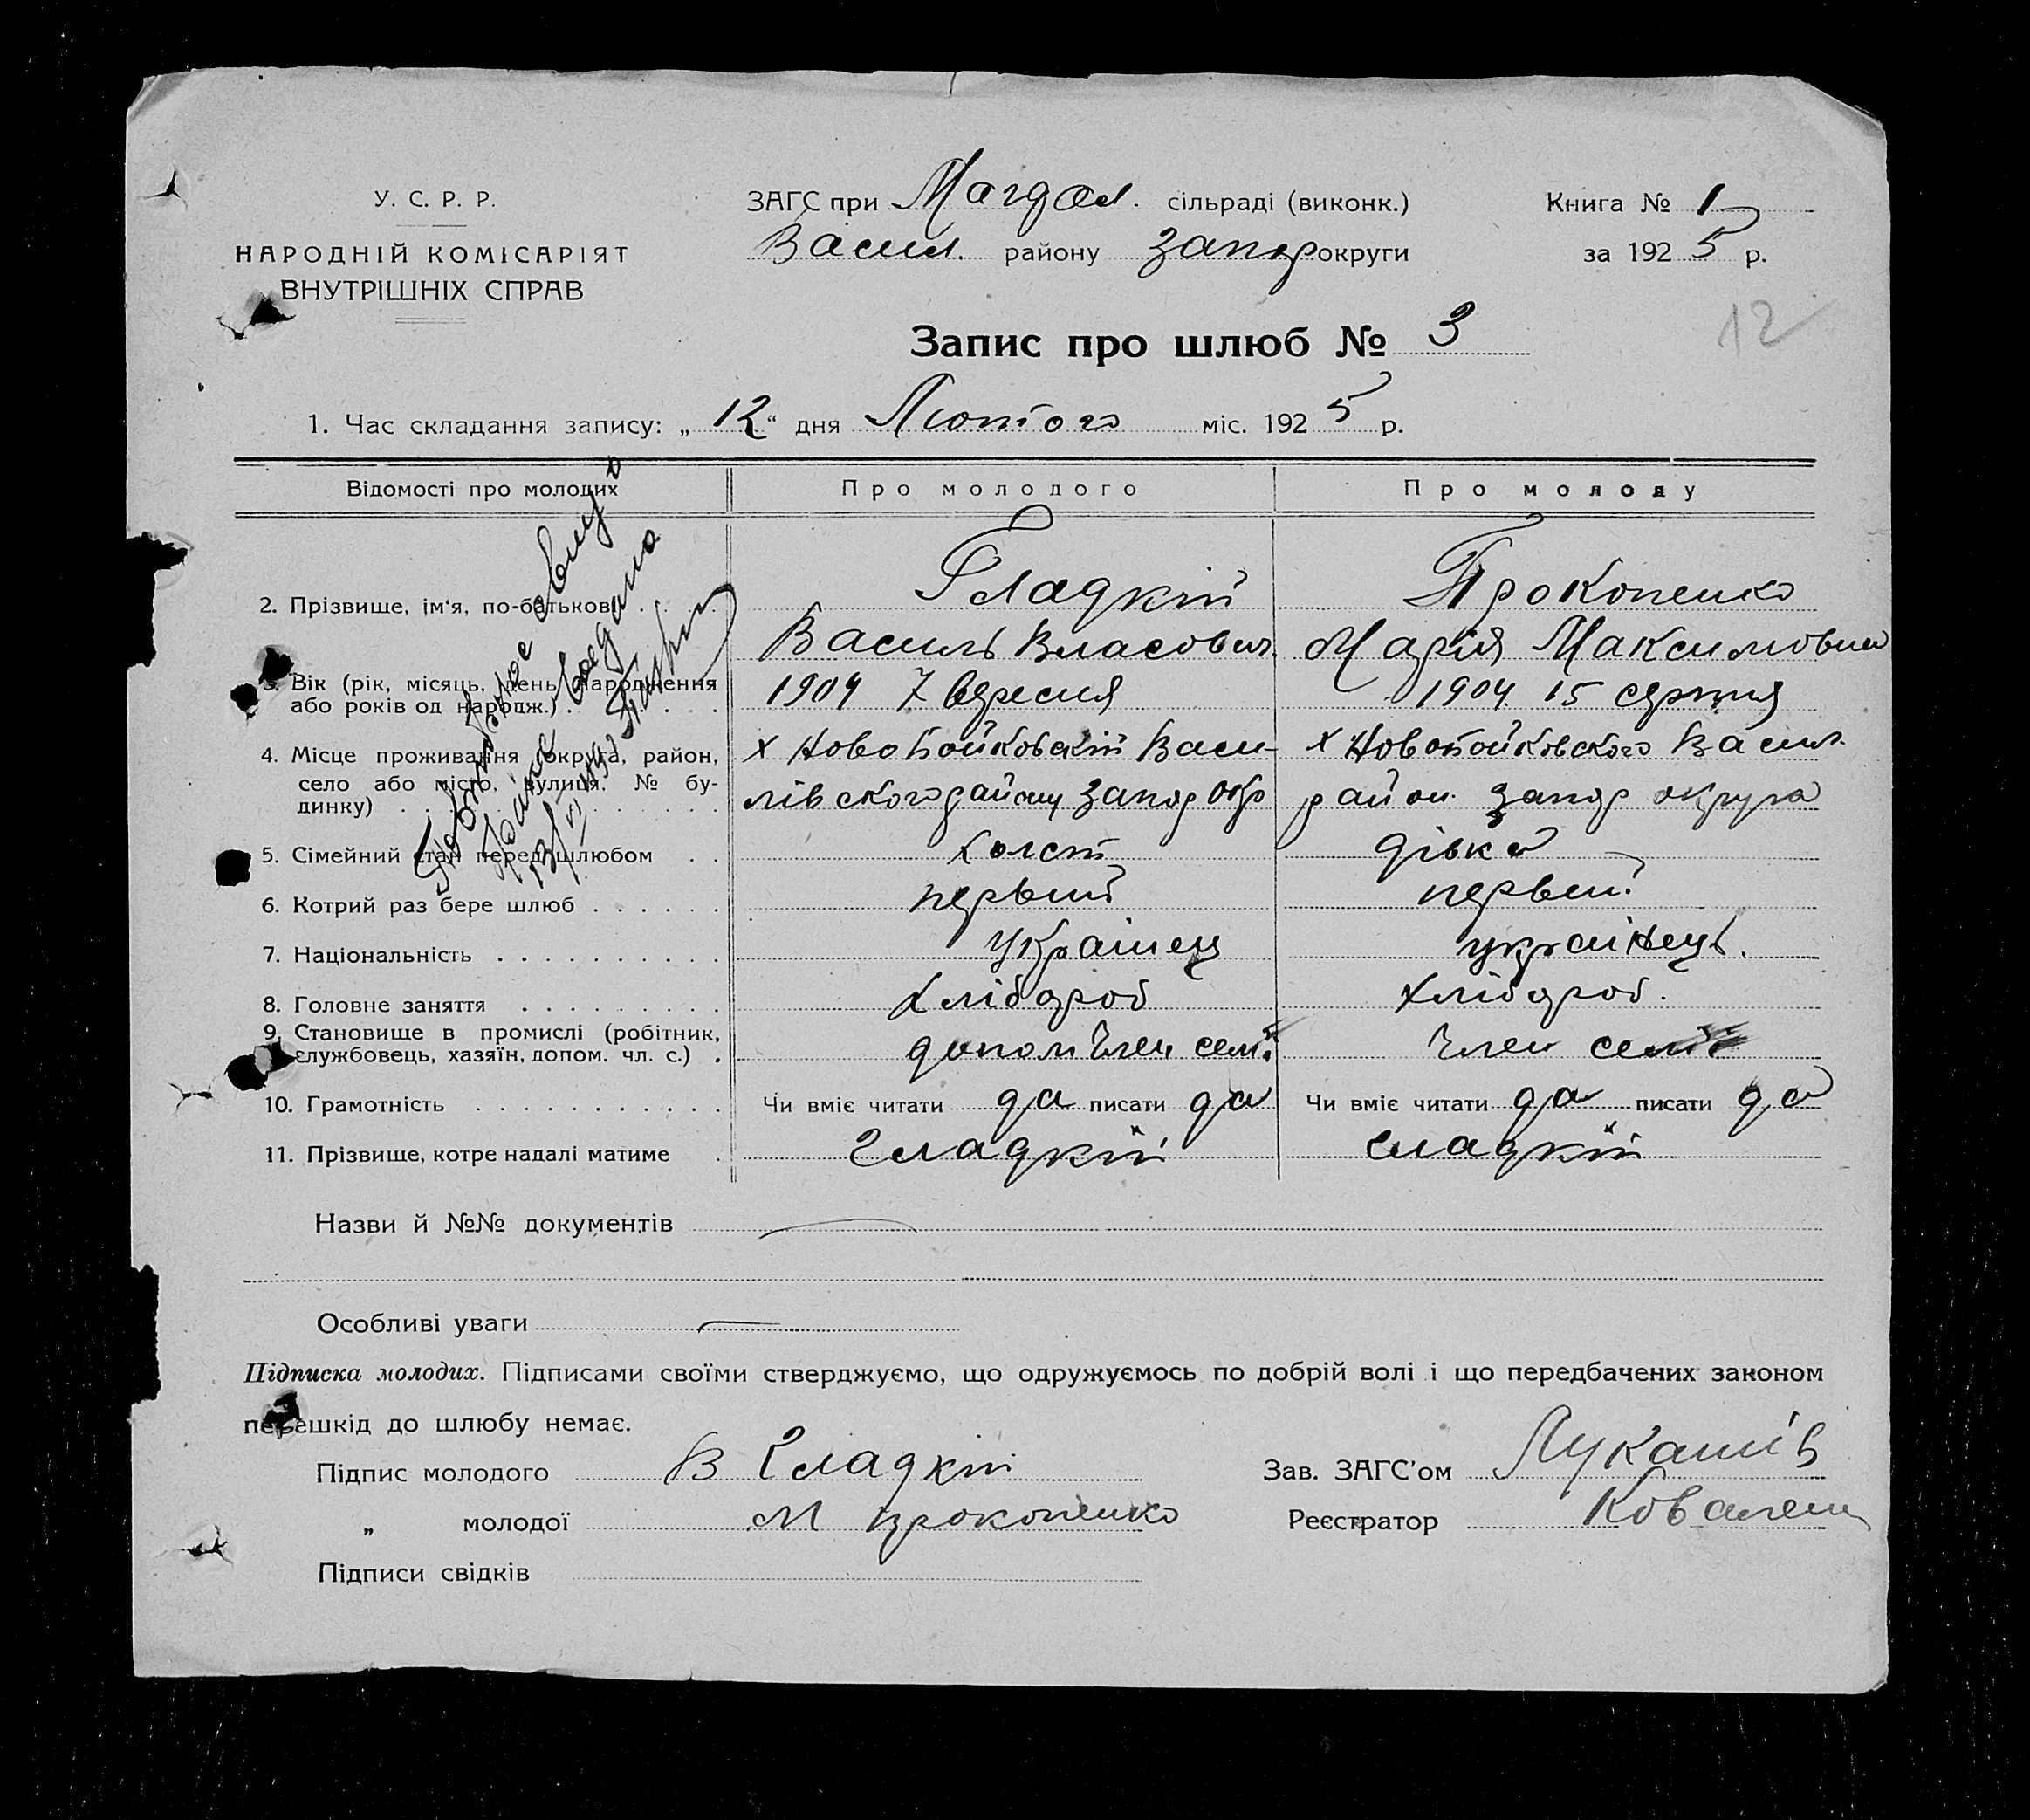 У. С. Р. Р.
НАРОДНІЙ КОМІСАРІЯТ
ВНУТРІШНІХ СПРАВ
ЗАГС при Магдал. сільраді (виконк.)
Васил. району Запор округи
Книга № 1
за 1925 р.
12
Запис про шлюб № 3
1. Час складання запису: „12“ дня Лютого міс. 1925 р.
Відомості про молодих
Про молодого
Про молоду
2. Прізвище, ім'я, по-батькові
Гладкій
Василь Власович
Прокопенко
Марія Максимовна
3. Вік (рік, місяць, день народження
або років од народж.)
1904 7 вересня
1904 15 серпня
4. Місце проживання (округа, район,
село або місто, вулиця, № бу-
динку)
х Новобойковскій Васи-
лівского району Запор Окр
х Новобойковского Васил.
район. Запор округа
5. Сімейний стан перед шлюбом
холост
дівка
6. Котрий раз бере шлюб
первий
первий
7. Національність
Українец
українець.
8. Головне заняття
хлібороб
хлібороб.
9. Становище в промислі (робітник,
службовець, хазяїн, допом. чл. с.)
допом член семї
член семї
10. Грамотність
Чи вміє читати да писати да
Чи вміє читати да писати да
11. Прізвище, котре надалі матиме
Гладкій
Гладкій
Повторное
Назви й №№ документів
Особливі уваги
Підписка молодих. Підписами своїми стверджуємо, що одружуємось по добрій волі і що передбачених законом
перешкід до шлюбу немає.
Підпис молодого В Гладкій
„ молодої М Прокопенко
Підписи свідків
Зав. ЗАГС'ом Лукашів
Реєстратор Ковален